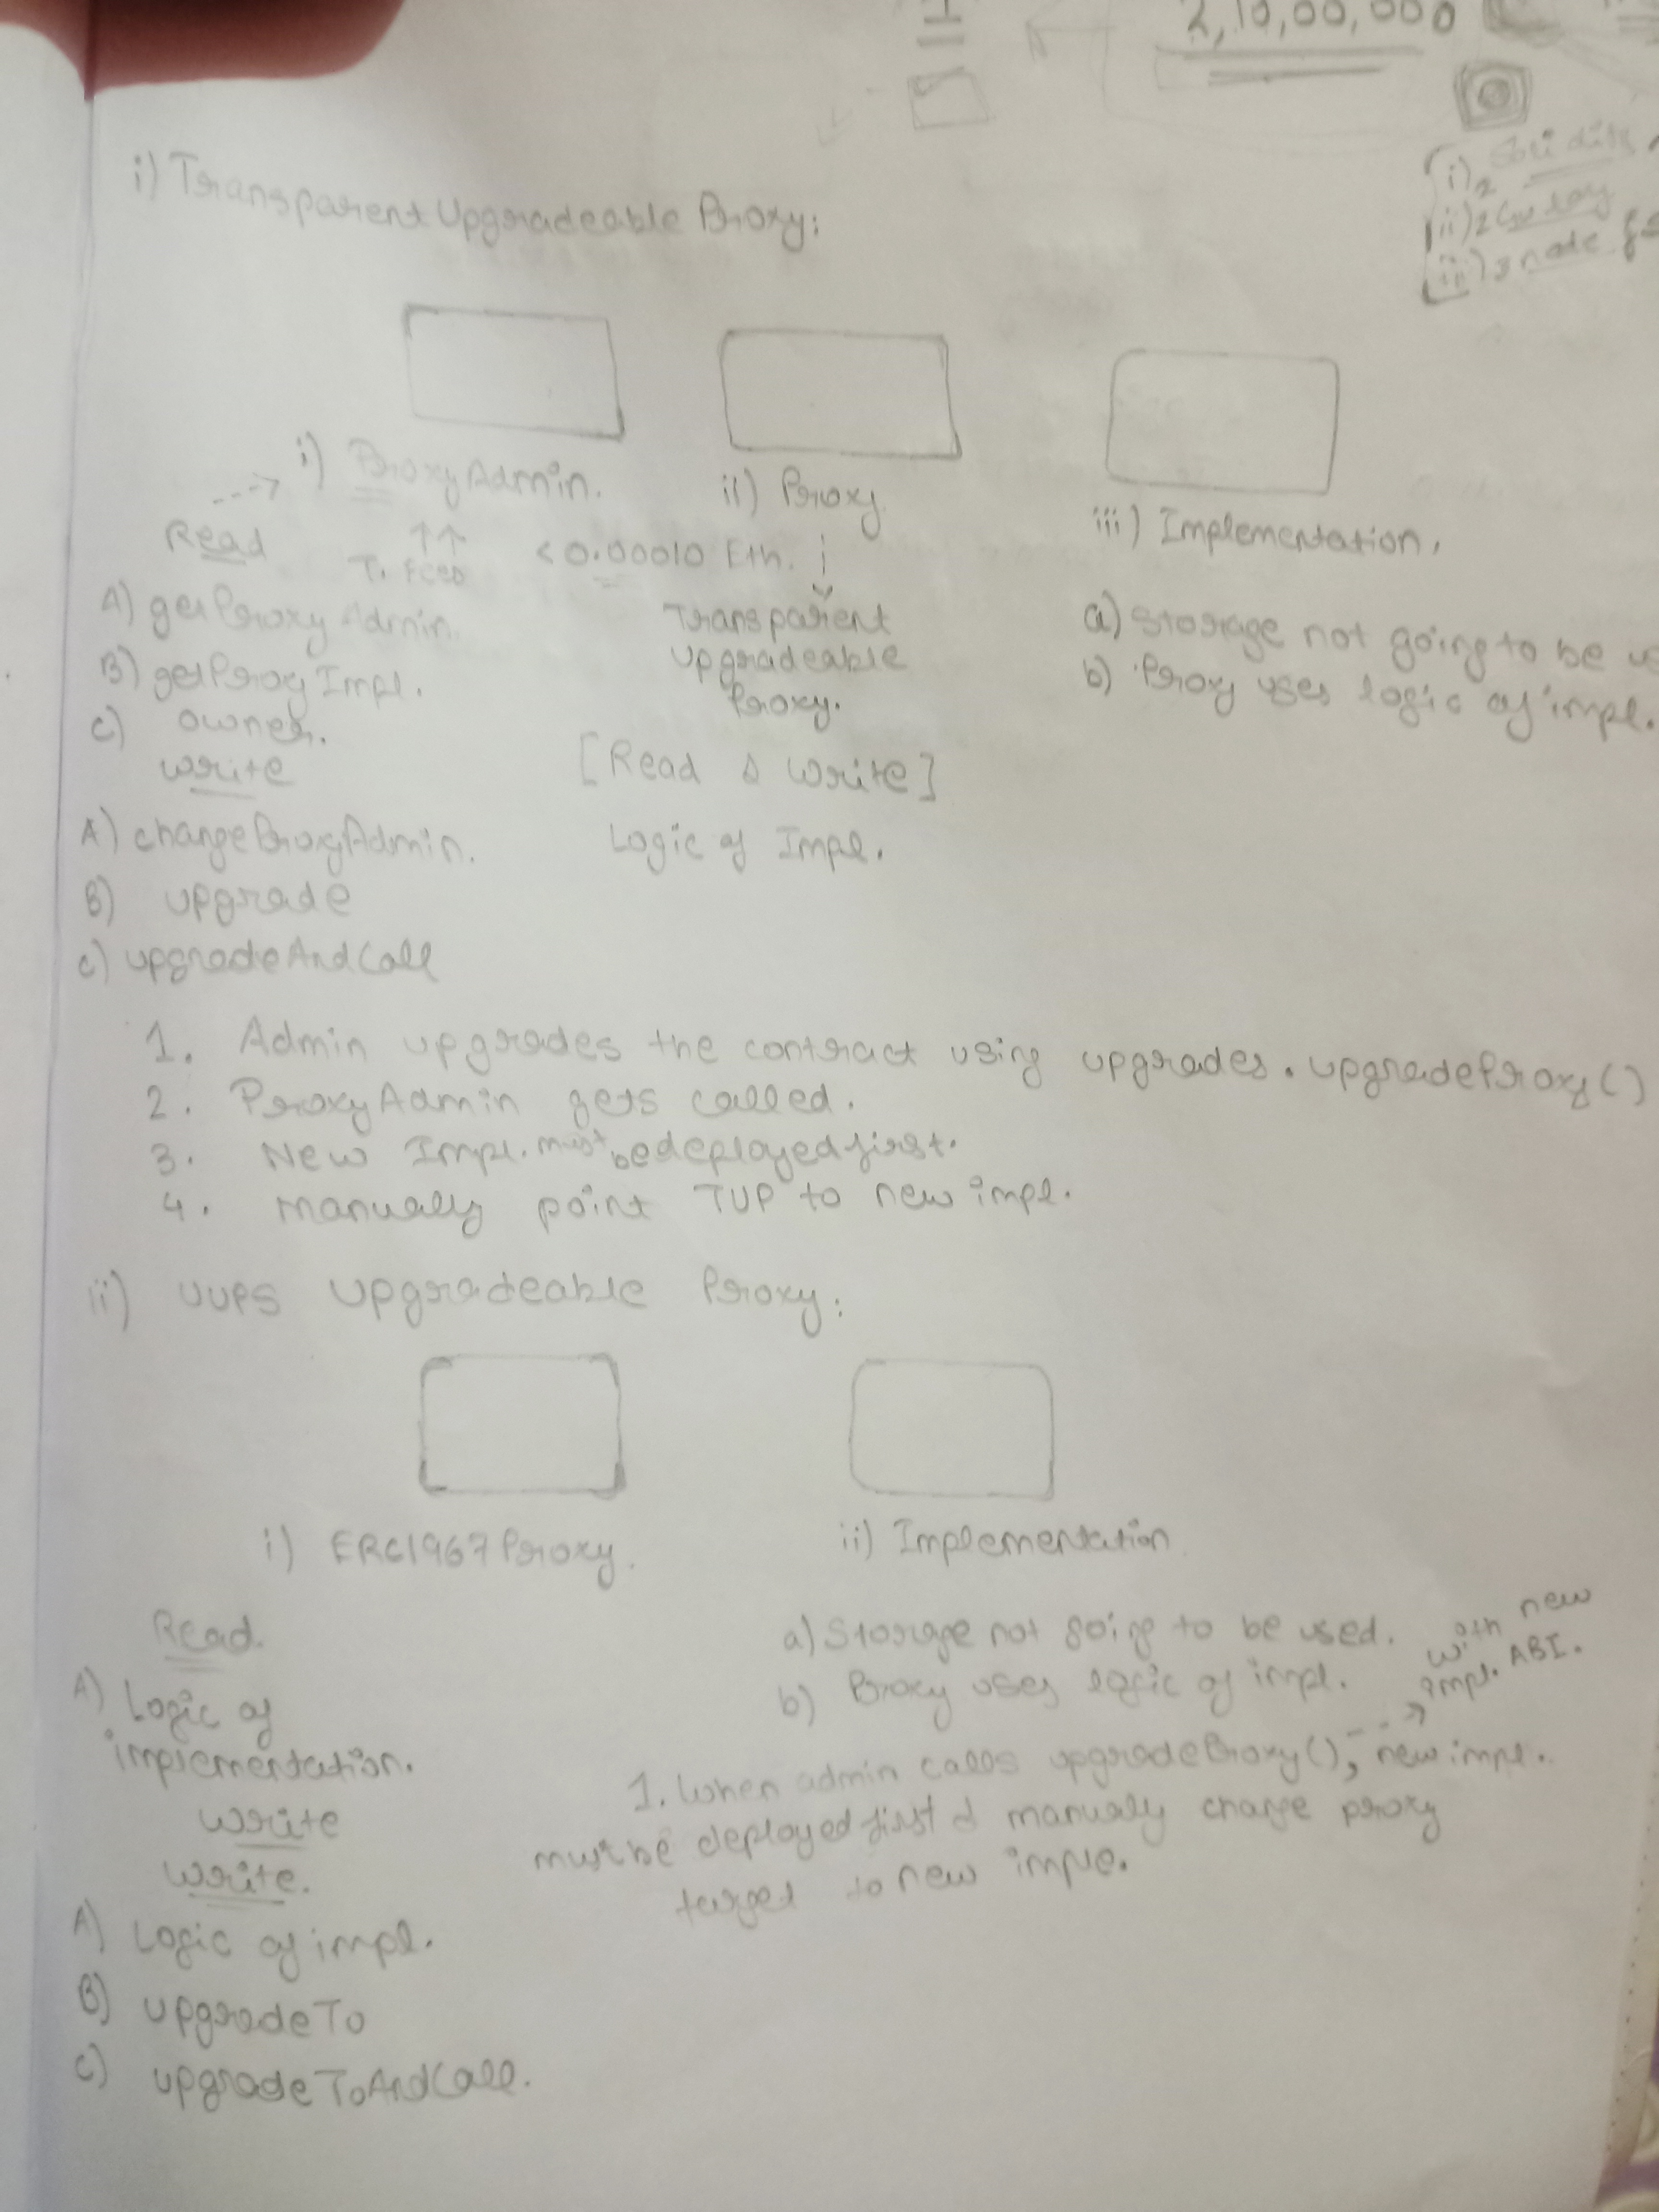 2,10,00,000
i) Solidity
ii) 2
iii) 3 node
i) Transparent Upgradeable Proxy:
i) ProxyAdmin.
ii) Proxy
iii) Implementation.
Read
↑↑
T. Fees
<0.00010 Eth.
A) getProxyAdmin.
B) getProxyImpl.
C) owner.
write
A) changeProxyAdmin.
B) upgrade
C) upgradeAndCall
Transparent
upgradeable
Proxy.
[Read & Write]
Logic of Impl.
a) Storage not going to be
b) Proxy uses logic of impl.
1. Admin upgrades the contract using upgrades.upgradeProxy()
2. ProxyAdmin gets called.
3. New Impl. must be deployed first.
4. Manually point TUP to new impl.
ii) UUPS Upgradeable Proxy:
i) ERC1967Proxy.
ii) Implementation
Read.
A) Logic of
implementation.
write
write.
A) Logic of impl.
B) upgradeTo
C) upgradeToAndCall.
a) Storage not going to be used.
b) Proxy uses logic of impl.
with new
impl. ABI.
1. When admin calls upgradeProxy(), new impl.
must be deployed first & manually change proxy
target to new imple.